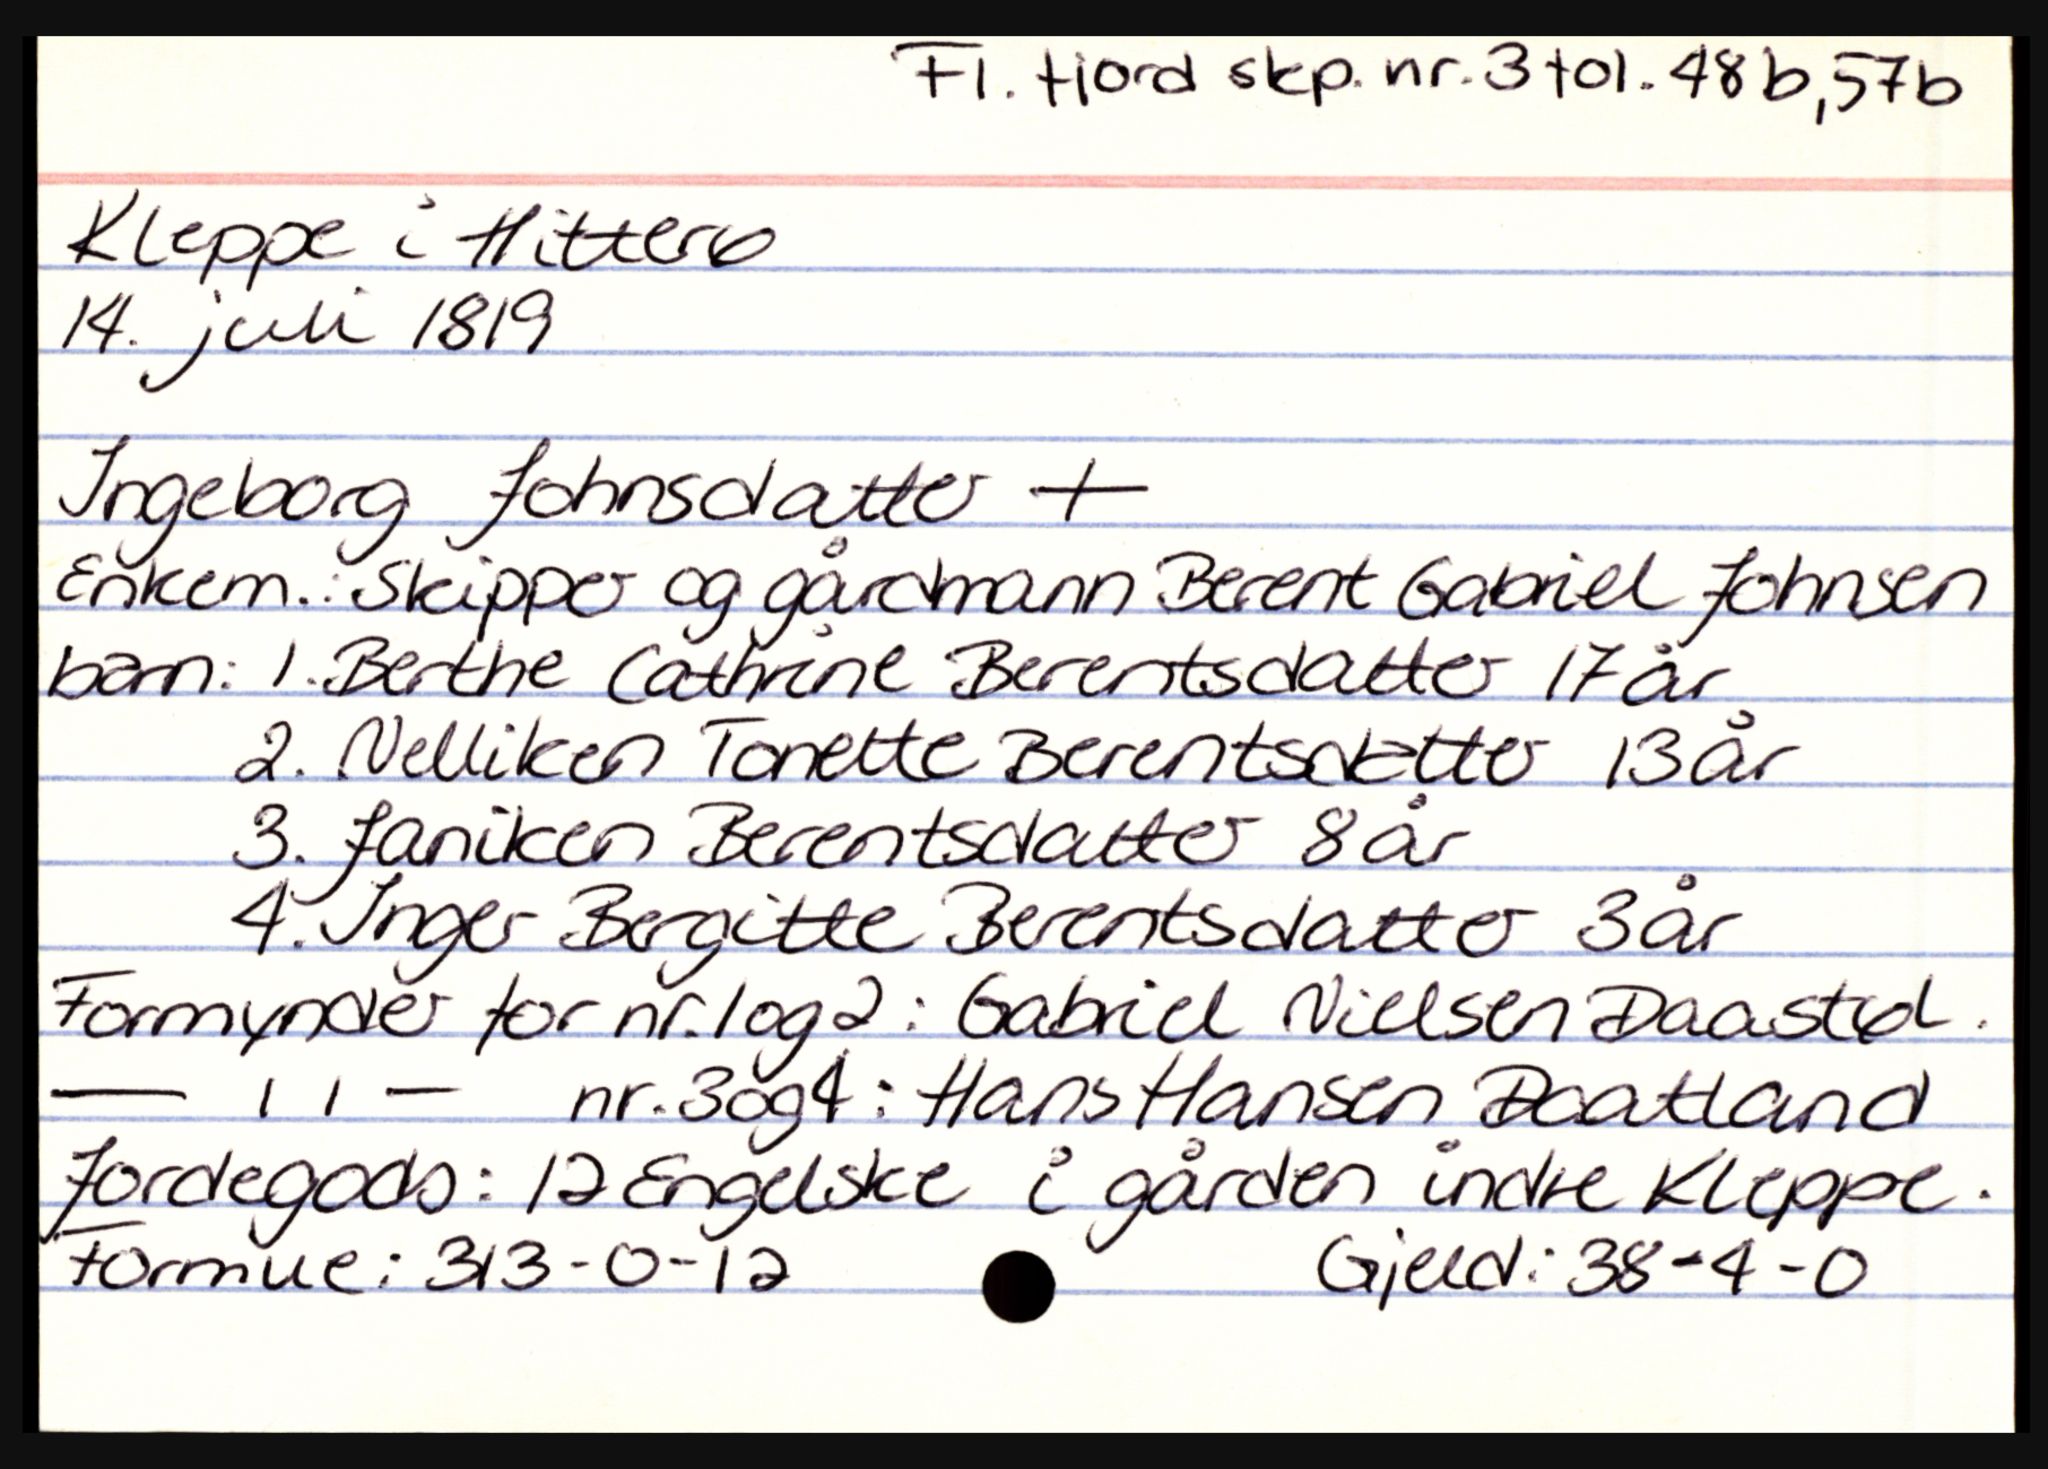 Fl. fjord skp. nr. 3 fol. 48b, 57b
Kleppe i Hitterø
14. juli 1819
Ingeborg Johnsdatter +
Enkem.: Skipper og gårdmann Berent Gabriel Johnsen
barn: 1. Berthe Cathrine Berentsdatter 17 år
2. Nelliken Tonette Berentsdatter 13 år
3. Janiken Berentsdatter 8 år
4. Inger Bergitte Berentsdatter 3 år
Formynder for nr. 1 og 2: Gabriel Nielsen Daastøl.
— 11 — nr. 3 og 4: Hans Hansen Daatland
Jordegods: 12 Engelske i gården indre Kleppe.
Formue: 313-0-12 Gjeld: 38-4-0